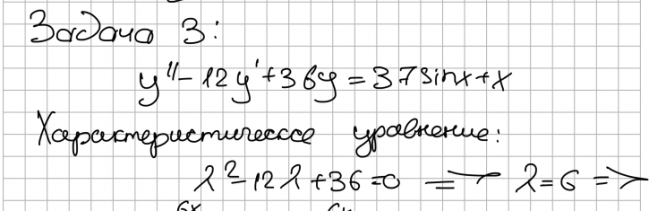 Задача 3:
y'' - 12y' + 36y = 37sinx + x
Характеристическое уравнение:
λ² - 12λ + 36 = 0 ⇒ λ = 6 ⇒